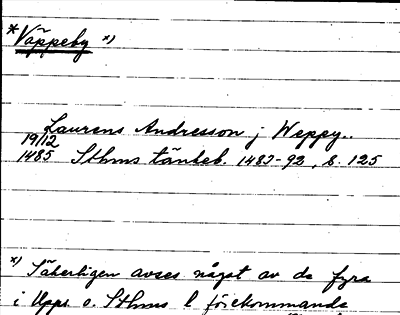 *Väppeby *)
Laurens Andresson j Weppy..
19/12
1485 Sthms tänkeb. 1483-92, s. 125
*) Säkerligen avses något av de fyra
i Upps. o. Sthms l förekommande